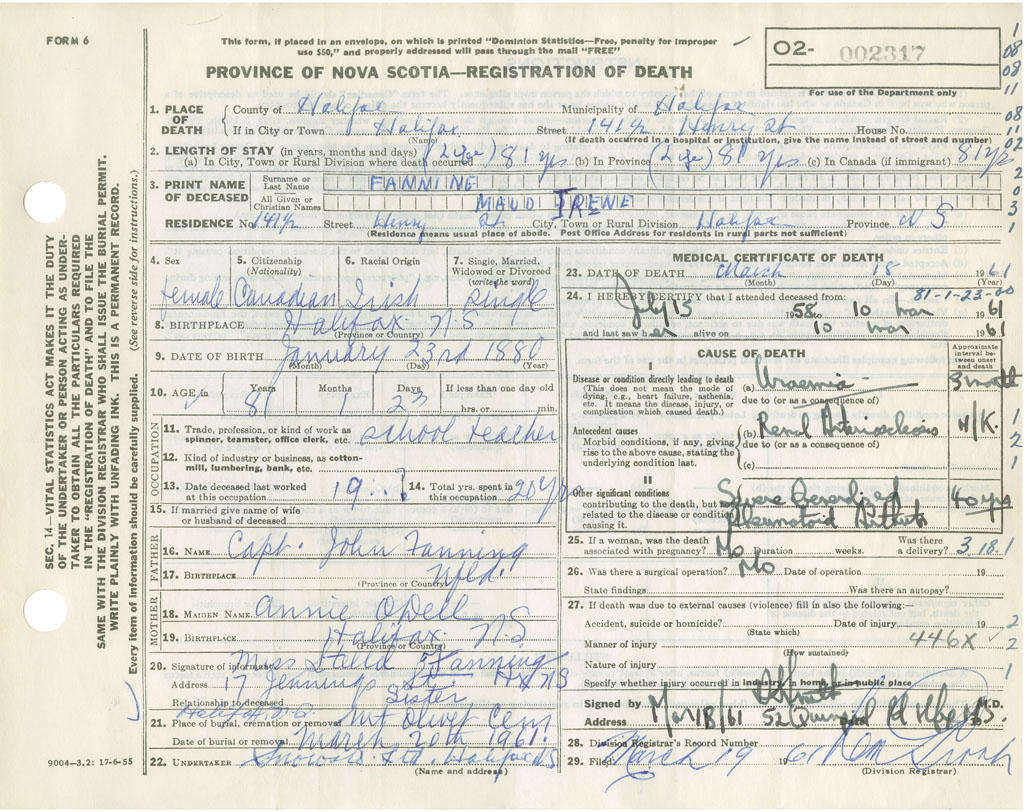 FORM 6
This form, if placed in an envelope, on which is printed "Dominion Statistics—Free, penalty for improper
use $50," and properly addressed will pass through the mail "FREE"
O2- 002317
For use of the Department only
PROVINCE OF NOVA SCOTIA—REGISTRATION OF DEATH
1. PLACE OF DEATH
County of Halifax Municipality of Halifax
If in City or Town Halifax Street 141½ Henry St House No.
(Name) (If death occurred in a hospital or institution, give the name instead of street and number)
2. LENGTH OF STAY (in years, months and days)
(a) In City, Town or Rural Division where death occurred 81 yrs (b) In Province 81 yrs (c) In Canada (if immigrant) 81 yrs
3. PRINT NAME OF DECEASED
Surname or Last Name FANNING
All Given or Christian Names MAUD IRENE
RESIDENCE No. 141½ Street Henry St City, Town or Rural Division Halifax Province N S
(Residence means usual place of abode. Post Office Address for residents in rural parts not sufficient)
SEC. 14—VITAL STATISTICS ACT MAKES IT THE DUTY
OF THE UNDERTAKER OR PERSON ACTING AS UNDER-
TAKER TO OBTAIN ALL THE PARTICULARS REQUIRED
IN THE "REGISTRATION OF DEATH" AND TO FILE THE
SAME WITH THE DIVISION REGISTRAR WHO SHALL ISSUE THE BURIAL PERMIT.
WRITE PLAINLY WITH UNFADING INK. THIS IS A PERMANENT RECORD.
Every item of information should be carefully supplied. (See reverse side for instructions.)
4. Sex female
5. Citizenship (Nationality) Canadian
6. Racial Origin Irish
7. Single, Married, Widowed or Divorced (write the word) single
8. BIRTHPLACE Halifax N.S
(Province or Country)
9. DATE OF BIRTH January 23rd 1880
(Month) (Day) (Year)
10. AGE in Years 81 Months 1 Days 23 If less than one day old hrs. or min.
OCCUPATION
11. Trade, profession, or kind of work as
spinner, teamster, office clerk, etc. school teacher
12. Kind of industry or business, as cotton-
mill, lumbering, bank, etc.
13. Date deceased last worked
at this occupation 19..?
14. Total yrs. spent in
this occupation 20 yrs
15. If married give name of wife
or husband of deceased
FATHER
16. NAME Capt. John Fanning
17. BIRTHPLACE Nfld.
(Province or Country)
MOTHER
18. MAIDEN NAME Annie ODell
19. BIRTHPLACE Halifax N.S
(Province or Country)
20. Signature of informant Miss Fanning
Address 17 Jennings St. Hx NS
Relationship to deceased Sister
Halifax, N.S.
21. Place of burial, cremation or removal Mt Olivet Cem
Date of burial or removal March 20th 1961.
22. UNDERTAKER Snows Ltd. Halifax NS
(Name and address)
9004—3.2: 17-6-55
MEDICAL CERTIFICATE OF DEATH
23. DATE OF DEATH March 18 1961
(Month) (Day) (Year)
81-1-23-00
24. I HEREBY CERTIFY that I attended deceased from:
July 15 1958 to 10 Mar 1961
and last saw her alive on 10 Mar 1961
CAUSE OF DEATH
Approximate interval between onset and death
I
Disease or condition directly leading to death
(This does not mean the mode of
dying, e.g., heart failure, asthenia,
etc. It means the disease, injury, or
complication which caused death.)
(a) Uraemia 3 month
due to (or as a consequence of)
Antecedent causes
Morbid conditions, if any, giving
rise to the above cause, stating the
underlying condition last.
(b) Renal Arteriosclerosis N/K.
due to (or as a consequence of)
(c)
II
Other significant conditions
contributing to the death, but not
related to the disease or condition
causing it.
Severe Generalized
Rheumatoid Arthritis 40 yrs
25. If a woman, was the death
associated with pregnancy? No Duration weeks. Was there a delivery? 3.18.1
26. Was there a surgical operation? No Date of operation 19
State findings Was there an autopsy?
27. If death was due to external causes (violence) fill in also the following:
Accident, suicide or homicide? Date of injury 19
(State which)
Manner of injury 446X
(How sustained)
Nature of injury
Specify whether injury occurred in industry, in home, or in public place
Signed by M.D.
Address Mar 18/61
28. Division Registrar's Record Number
29. Filed March 19 1961
(Division Registrar)